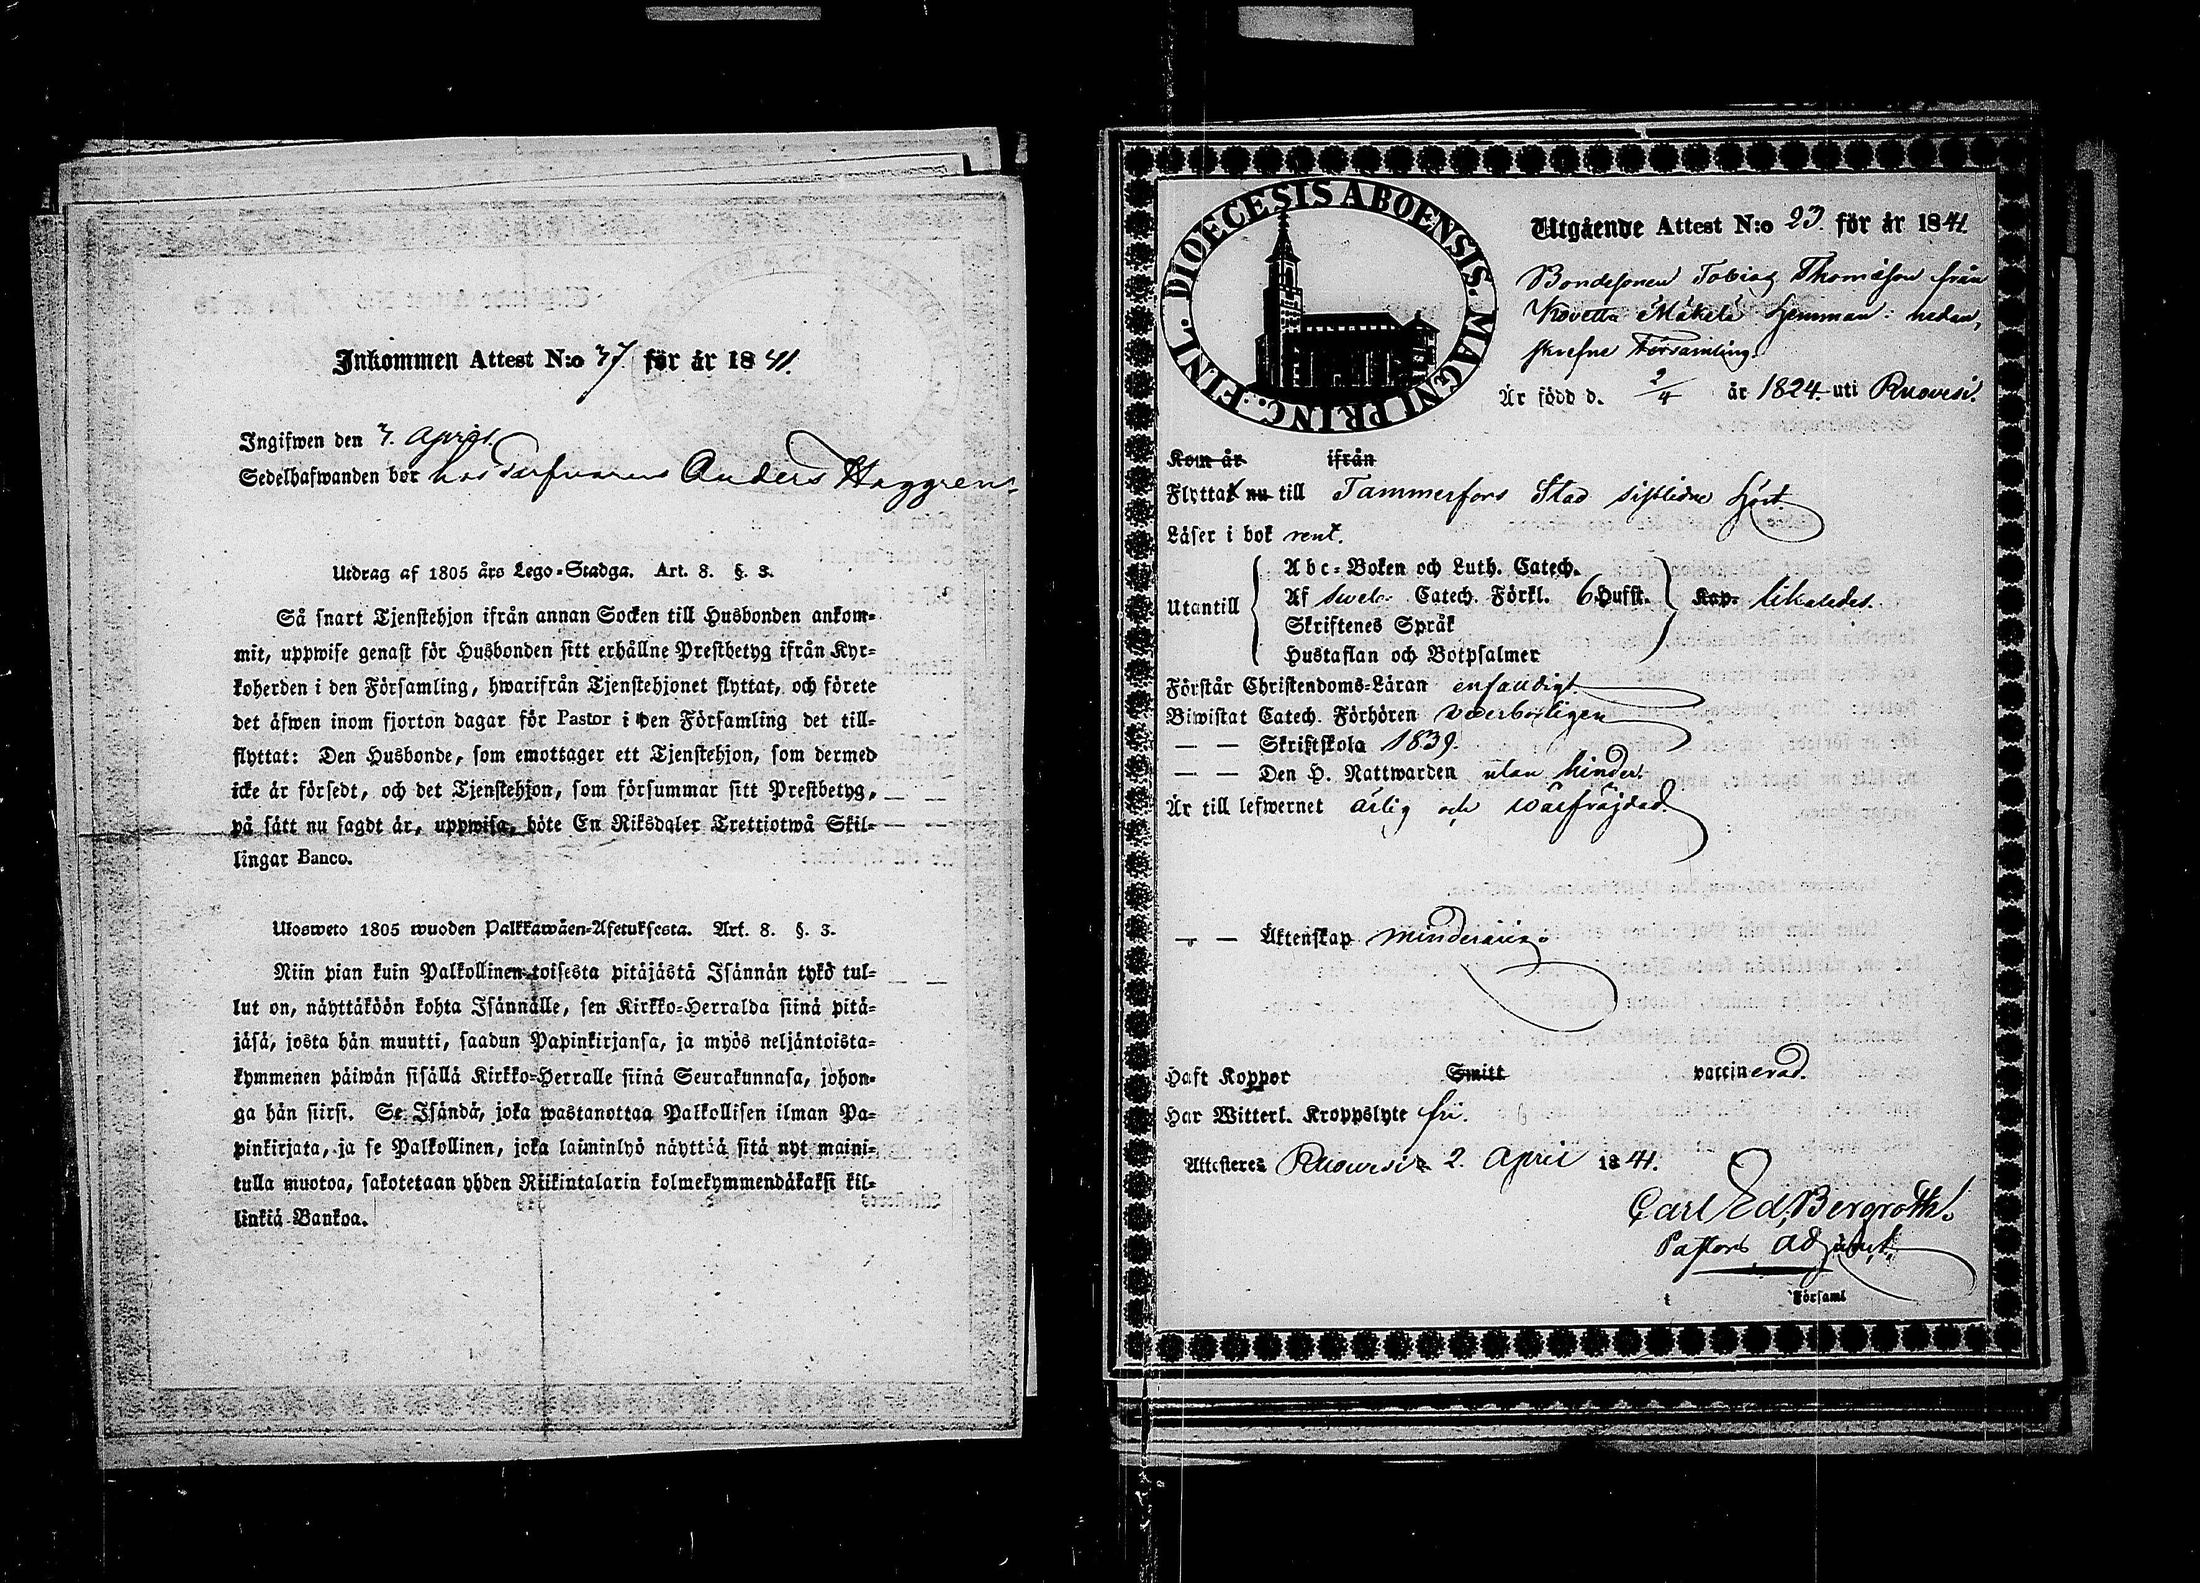 Inkommen Attest N:o 37 för år 1841.
Ingifwen den 7. April.
Sedelhafwanden bor hos Anders Haggren
Utdrag af 1805 års Lego-Stadga. Art. 8. §. 3.
Så snart Tjenstehjon ifrån annan Socken till Husbonden ankom-
mit, uppwise genast för Husbonden sitt erhållne Prestbetyg ifrån Kyr-
koherden i den Församling, hwarifrån Tjenstehjonet flyttat, och förete
det äfwen inom fjorton dagar för Pastor i den Församling det till-
flyttat: Den Husbonde, som emottager ett Tjenstehjon, som dermed
icke är försedt, och det Tjenstehjon, som försummar sitt Prestbetyg,
på sätt nu sagdt är, uppwisa, böte En Riksdaler Trettiotwå Skil-
lingar Banco.
Ulosweto 1805 wuoden Palkkawäen-Asetuksesta. Art. 8. §. 3.
Niin pian kuin Palkollinen toisesta pitäjästä Isännän tykö tul-
lut on, näyttäköön kohta Isännälle, sen Kirkko-Herralda siinä pitä-
jäsä, josta hän muutti, saadun Papinkirjansa, ja myös neljäntoista-
kymmenen päiwän sisällä Kirkko-Herralle siinä Seurakunnasa, johon-
ga hän siirsi. Se Isändä, joka wastanottaa Palkollisen ilman Pa-
pinkirjata, ja se Palkollinen, joka laiminlyö näyttää sitä nyt maini-
tulla muotoa, sakotetaan yhden Riikintalarin kolmekymmendäkaksi kil-
linkiä Bankoa.
DIOECESIS ABOENSIS. MAGNI PRINC. FINL.
Utgående Attest N:o 23. för år 1841
Bondesonen Tobias Thomasson från
Kovetta Mäkelä hemman i nedan,
skrefne Församling.
Är född d. 2/4 år 1824 uti Ruovesi.
Kom år ifrån
Flyttat nu till Tammerfors Stad sistledne höst.
Läser i bok rent.
Utantill
Abc-Boken och Luth. Catech.
Af Sveb. Catech. Förkl. 6 Hufst. Kap. likaledes.
Skriftenes Språk
Hustaflan och Botpsalmer
Förstår Christendoms-Läran enfaldigt
Biwistat Catech. Förhören vederbörligen
— — Skriftskola 1839.
— — Den H. Nattwarden utan hinder.
Är till lefwernet ärlig och wälfräjdad.
— — Äktenskap minderårig.
Haft Koppor Smitt vaccinerad.
Har Witterl. Kroppslyte fri.
Attesteres Ruovesi 2. April 1841.
Carl Ed. Bergroth.
Pastors Adjunkt.
i Församl